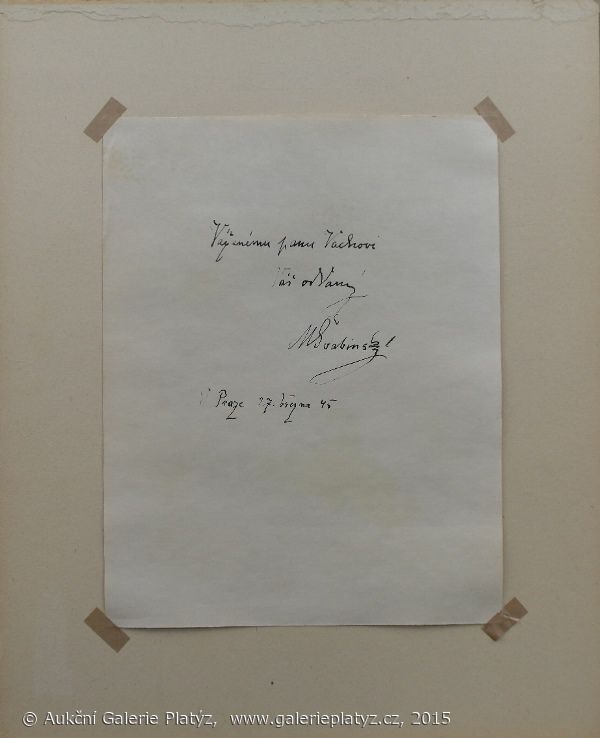 Váženému panu Váchovi
Váš oddaný
MŠvabinský
V Praze 27. října 45
© Aukční Galerie Platýz, www.galerieplatyz.cz, 2015